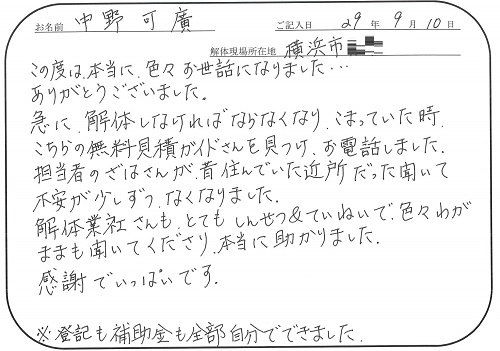 お名前 中野可廣 ご記入日 29年9月10日
解体現場所在地 横浜市
この度は、本当に、色々お世話になりました…
ありがとうございました。
急に、解体しなければならなくなり、こまっていた時、
こちらの無料見積ガイドさんを見つけ、お電話しました。
担当者のざはさんが、昔住んでいた近所だった聞いて
不安が少しずつ、なくなりました。
解体業社さんも、とてもしんせつ&ていねいで、色々わが
ままも聞いてくださり、本当に助かりました。
感謝でいっぱいです。
※登記も補助金も全部自分でできました。